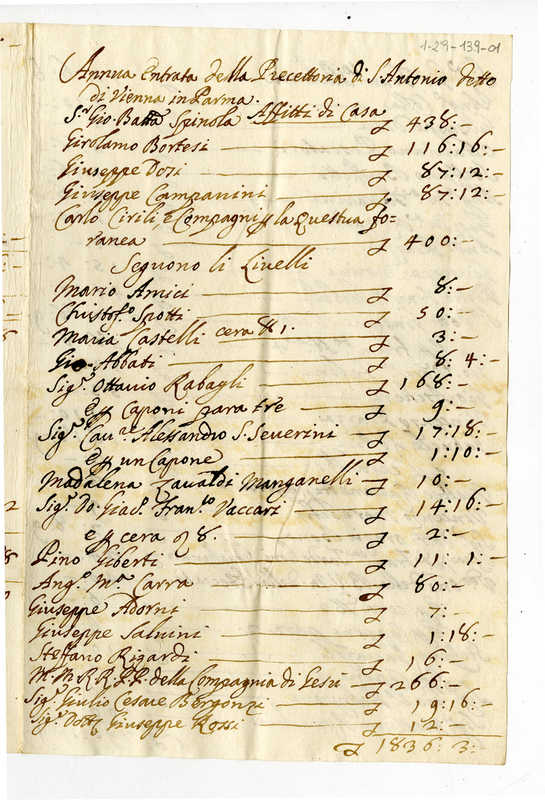 1-29-139-01
Annua Entrata della Precettoria di S. Antonio detto
di Vienna in Parma.
Affitti di Casa
S.r Gio. Batta Spinola £ 438:-
Girolamo Bortesi £ 116:16:-
Giuseppe Dosi £ 87:12:-
Giuseppe Campanini £ 87:12:-
Carlo Cirili, e Compagni p la questua fo-
ranea £ 400:-
Seguono li Livelli
Mario Amici £ 8:-
Christof.o Spotti £ 50:-
Maria Castelli cera lb 1. £ 3:-
Gio. Abbati £ 8:4:-
Sig.r Ottavio Rabagli £ 168:-
e p Caponi para tre £ 9:-
Sig.r Cau.re Alessandro S. Severini £ 17:18:-
e p un Capone £ 1:10:-
Madalena Zavaldi Manganelli £ 10:-
Sig.r Do. Giac.o Fran.co Vaccari £ 14:16:-
e p cera 8. £ 2:-
Pino Giberti £ 11:1:-
Ang.o M.a Carra £ 80:-
Giuseppe Adorni £ 7:-
Giuseppe Saluini £ 1:18:-
Steffano Rigardi £ 16:-
M.M. R.R. P.P. della Compagnia di Gesù £ 266:-
Sig.r Giulio Cesare Bergonzi £ 19:16:-
Sig.r Dott.r Giuseppe Rossi £ 12:-
£ 1836:3:-